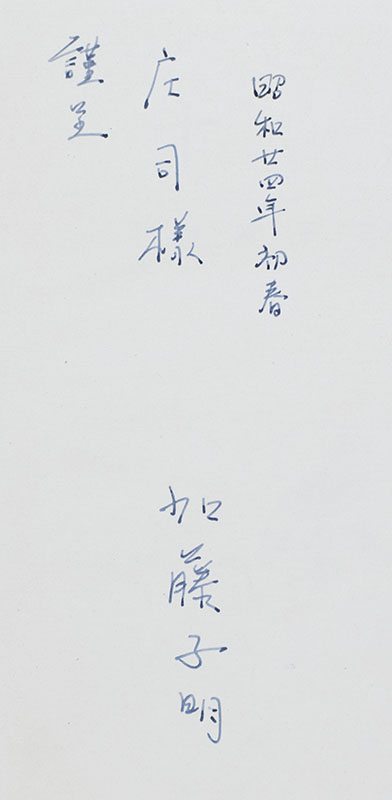 昭和廿四年初春
加藤子明
庄司様
謹呈